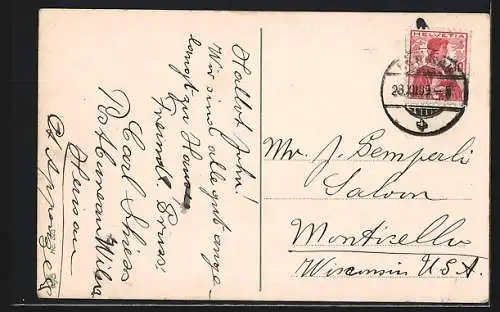 Hallot John!
Wir sind alle gut ange-
langt zu Hause
Freundl. Gruss.
Carl Schiess
Postbureau Wilen
Herisau
Ct. Appenzell
HELVETIA
28.XII.09.
Mr. J. Gemperli
Saloon
Monticello
Wisconsin U.S.A.